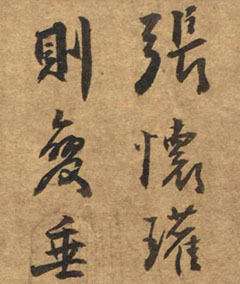 張懷瓘
則垂